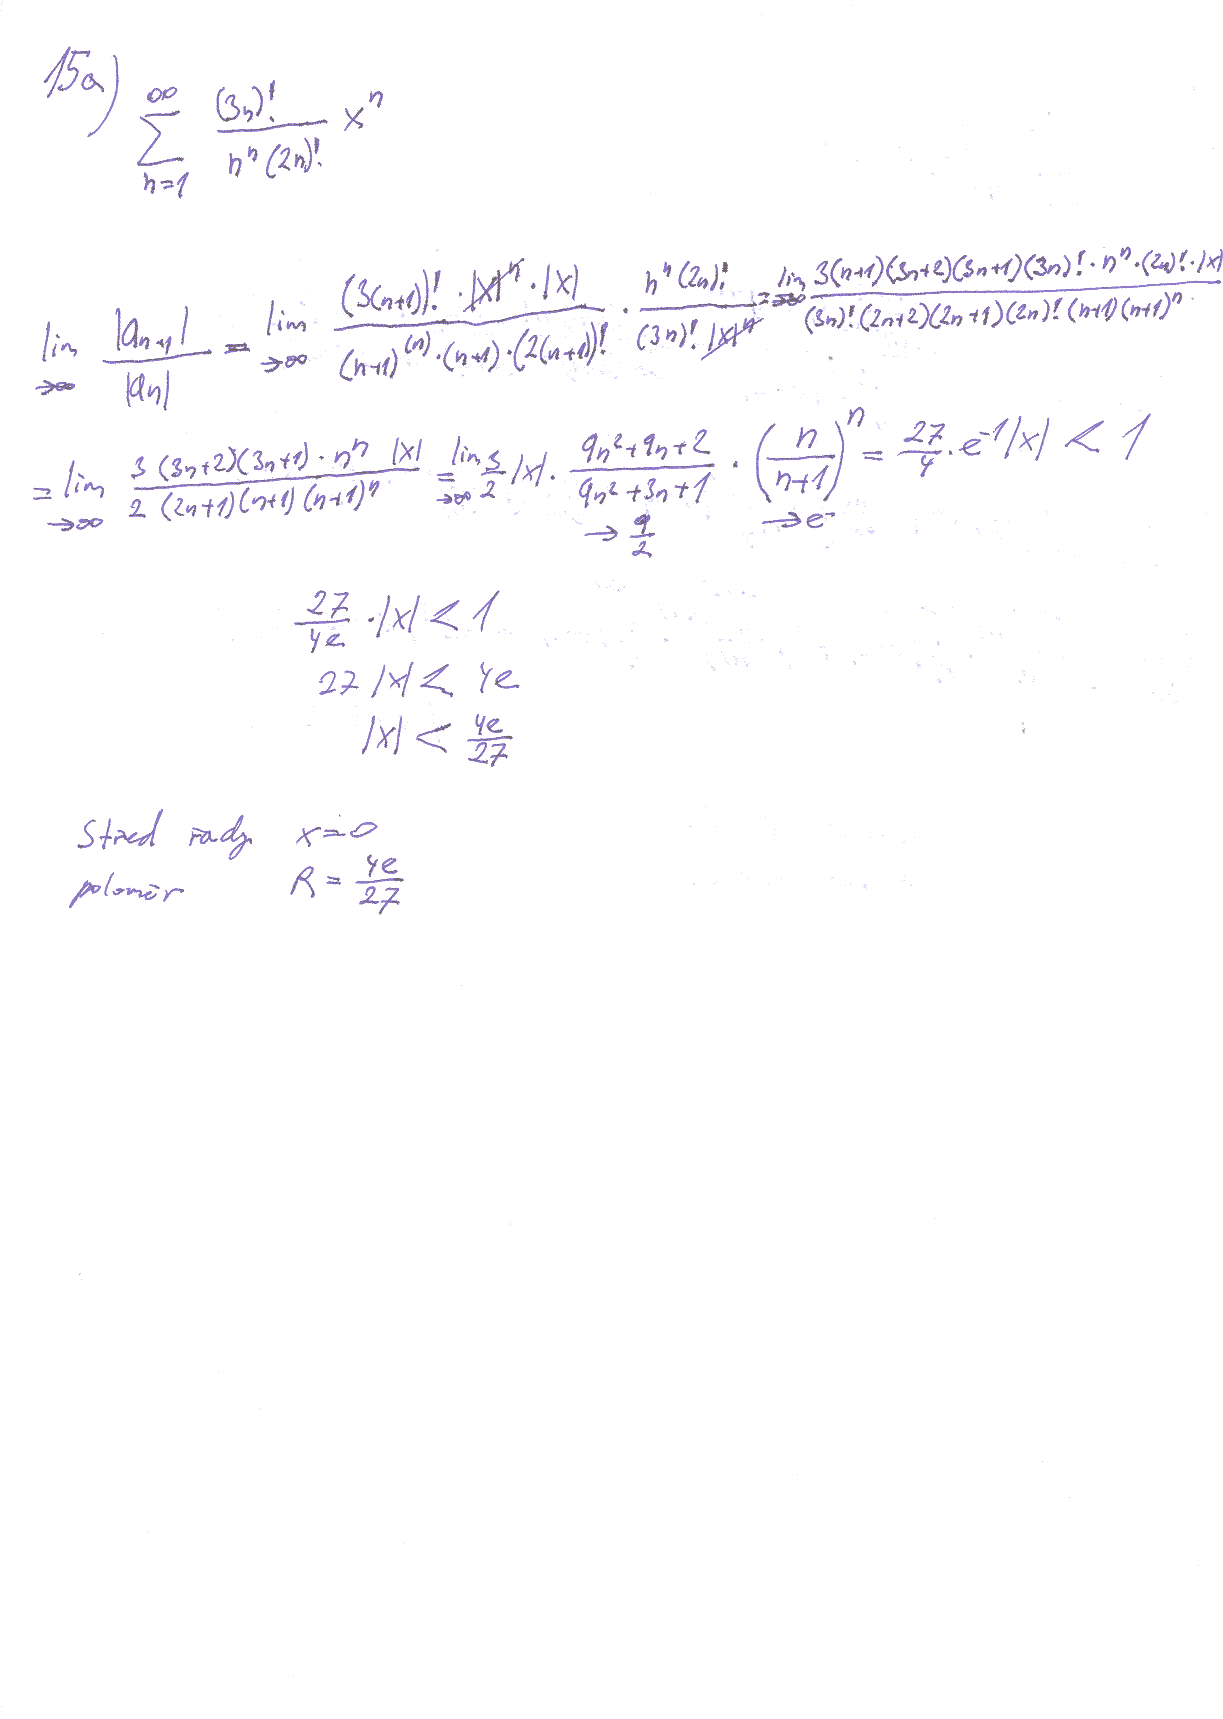 15a)
∑_{n=1}^{∞} (3n)! / (n^n (2n)!) x^n
lim_{→∞} |a_{n+1}| / |a_n| = lim_{→∞} ((3(n+1))! · |x|^n · |x|) / ((n+1)^{(n)} · (n+1) · (2(n+1))!) · (n^n (2n)!) / ((3n)! |x|^n) = lim_{→∞} (3(n+1)(3n+2)(3n+1)(3n)! · n^n · (2n)! · |x|) / ((3n)! (2n+2)(2n+1)(2n)! (n+1)(n+1)^n)
= lim_{→∞} (3 (3n+2)(3n+1) · n^n |x|) / (2 (2n+1)(n+1)(n+1)^n) = lim_{→∞} 3/2 |x| · (9n²+9n+2) / (9n²+3n+1) · (n/(n+1))^n = 27/4 · e^{-1} |x| < 1
→ 9/2 → e^-
27/4e · |x| < 1
27 |x| < 4e
|x| < 4e/27
Střed řady x=0
poloměr R = 4e/27